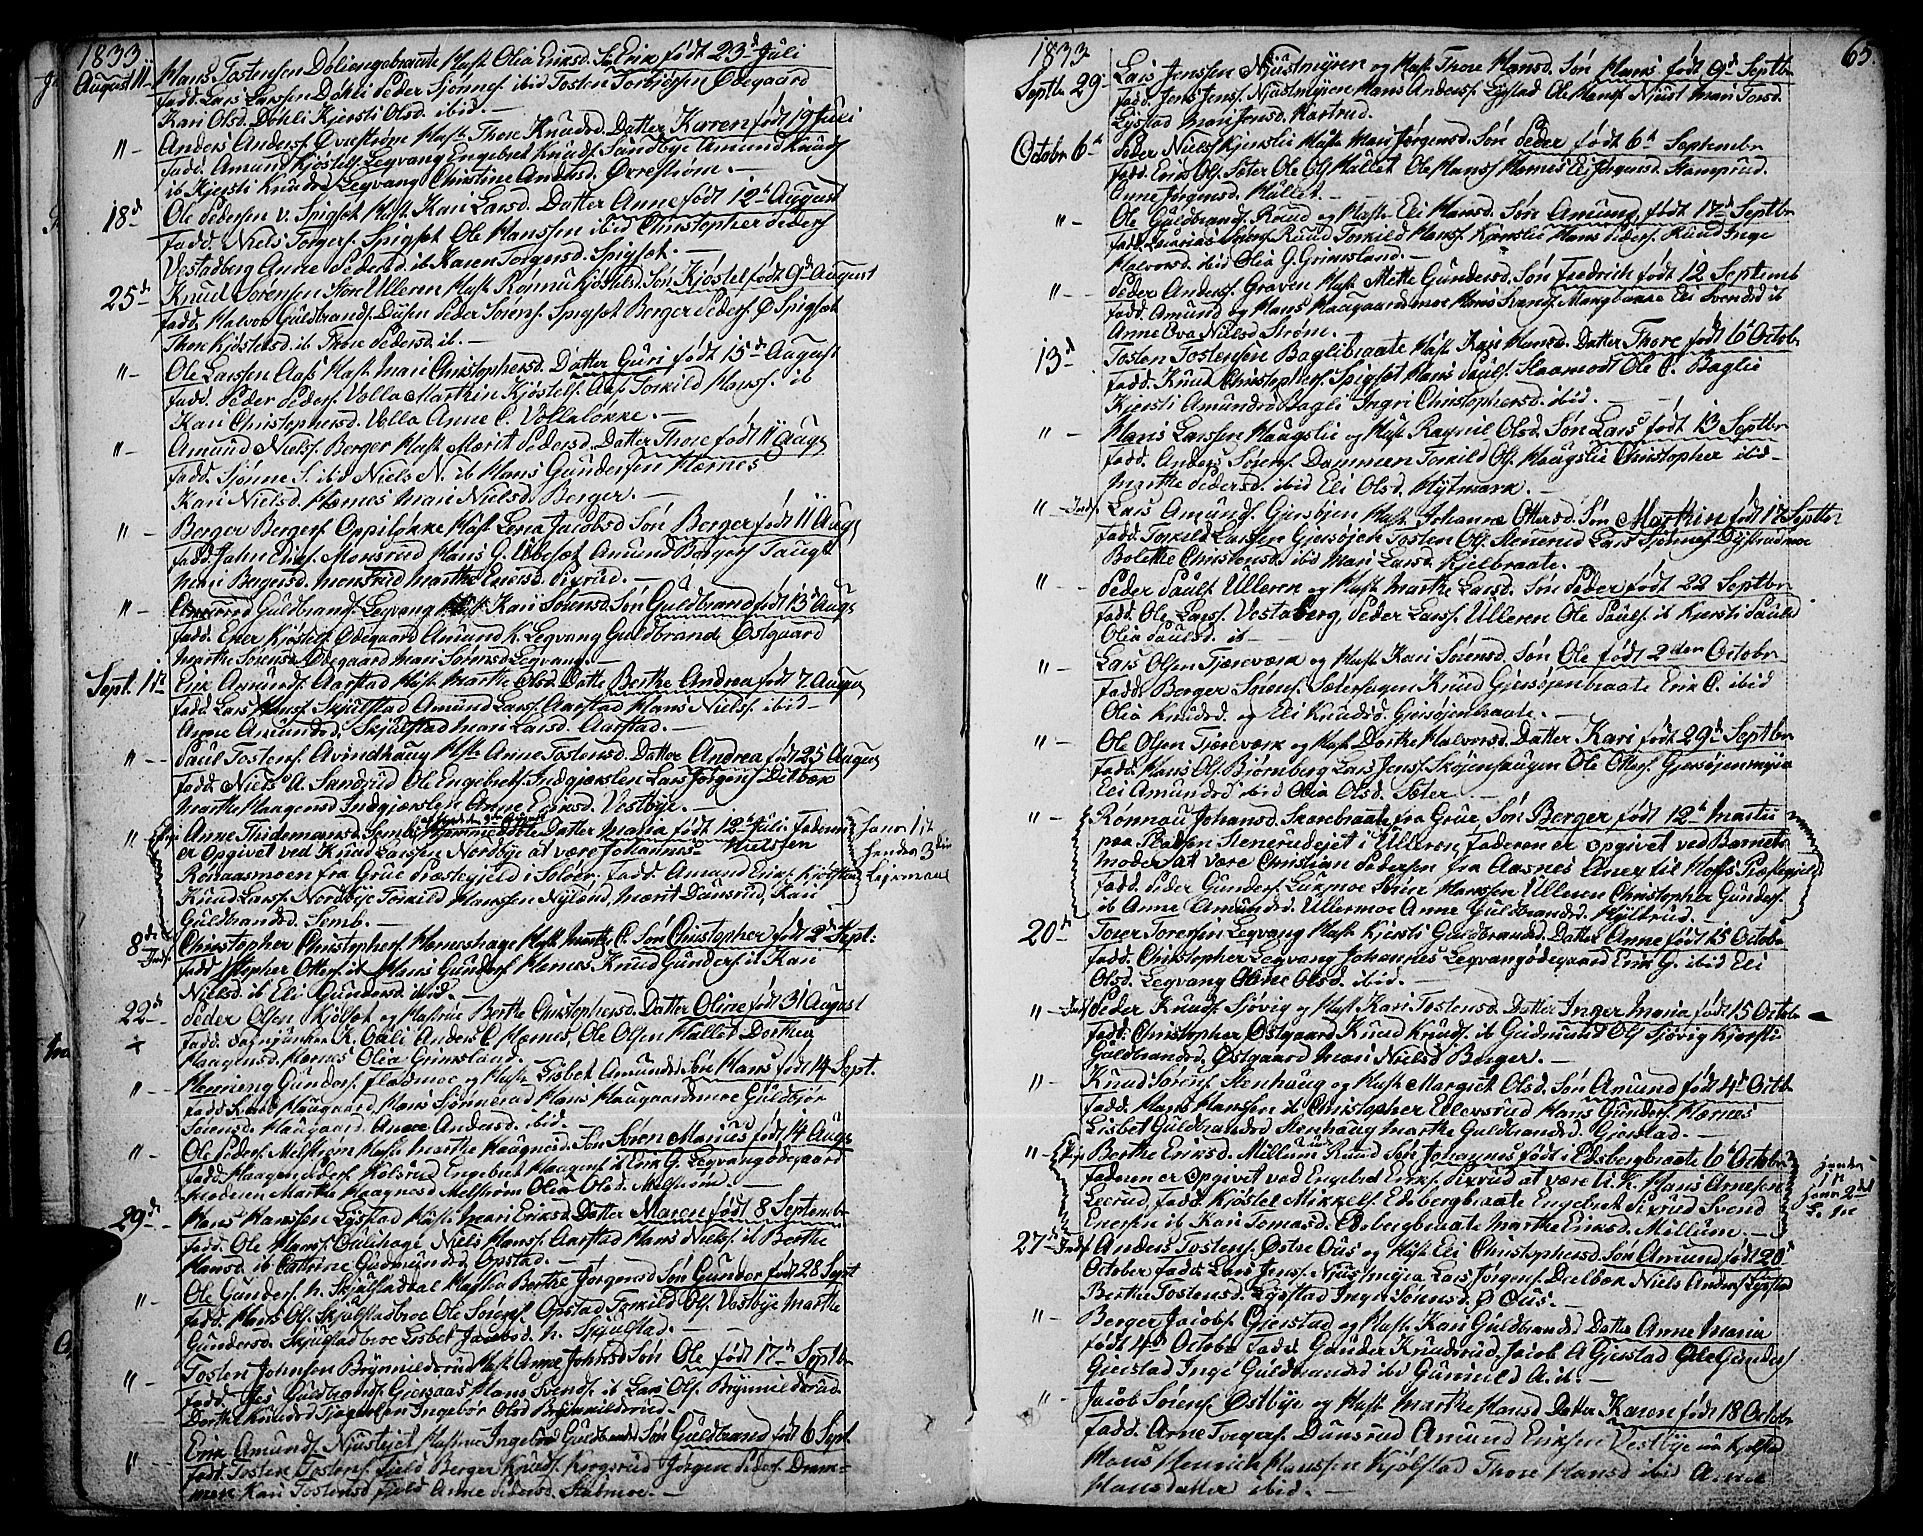 1833
August 11 Hans Tostensen Döliengebraate Hust. Olia Eriksd. S. Erik født 23d Juli
fadd. Lars Larsen Dohli Peder Sjönnes. ibid Tosten Torbjösen Ødegaard
Kari Olsd. Dohli Kjersti Olsd. ibid —
" — Anders Anders. Ovrestrøme Hust. Thore Knudsd. Datter Karen født 19 Juli
fadd. Amund Kjöstels. Legvang Engebret Knuds. Sandbye Amund Knuds
ib Kjersti Knudsd. Legvang Christine Andersd.Ørrestrøm. —
18d Ole Pedersen v. Spigset Hust. Kari Larsd. Datter Anne født 12te August
fadd. Niels Torgers. Spigset Ole Hanssen ibid Christopher Peders
Vestadberg Anne Pedersd. ib Karen Torgersd. Spigset. —
25d Knud Sørensen Store Ulleren Hust. Rønnu Kjöstelsd. Søn Kjöstel født 9d August
fadd. Halvor Guldbrands. Dusen Peder Sørens. Spigset Berger Peders. Ø Spigset
Thore Kjöstelsd. ib Thore Pedersd. ib. —
" — Ole Larsen Aass Hust. Mari Christophersd. Datter Guri født 15d August
fadd. Peder Peders. Volla Marthin Kjöstels. Aas. Torkild Hans. ib
Kari Christophersd. Volla Anne C. Vollaløkke. —
" — Amund Niels. Berger Hust. Marit Pedersd. Datter Thore født 11 Augs
fadd. Sjønne S. ibid Niels N. ib Hans Gundersen Hernes
Kari Nielsd. Hernes Mari Nielsd. Berger. —
" — Berger Bergers. Oppiløkke Hust. Lena Jacobsd Søn Berger født 11 Augs
fadd. John Monsrud Hans G. Ulveset Amund Bergers Taugst
Mari Bagersd. Monsrud Marthe Enersd. Sixrud. —
" — Amund Guldbrands. Legvang Hust. Kari Sørensd. Søn Guldbrand født 13 Augs
fadd. Ener Kjöstels. Ødegaard Amund K. Legvang Guldbrand Østgaard
Marthe Sørensd. Ødegaard Mari Sørensd Legvang. —
Sept. 1ste Erik Amunds. Aarstad Hust. Marthe Olsd. Datte Berthe Andrea født 7 Augus
fadd. Lars Hans. Skjulstad Amund Lars. Aarstad Hans Niels. ibid —
Anne Amundsd. Skjulstad Mari Larsd. Aarstad. —
" — Paul Tostens. Avindhaug Hust. Anne Tostensd. Datter Andrea født 25 Augus
fadd. Niels A. Sandrud Ole Engebrets. Indgjerslen Lars Jørgens. Dilbek
Marthe Haagensd. Indgjerslen Anne Eriksd. Vestbye. —
" Anne Thidemansd. Semb Datter Maria født 12te Juli Faderen
er opgivet ved Knud Larsen Nordbye at være Johannes Nielssen
Rönaasmoen fra Grue Præstegjeld i Solöer. Fadd. Amund Eriks. Kjølstad
Knud Lars. Nordbye Torkild Hanssen Nylend, Marit Dunsrud, Kari
Guldbrandsd. Semb. —
8d Christopher Christophers. Herneshage Hust. Marthe C. Søn Christopher født 2d Sept:
fadd. Stopher Otters. ib Hans Gunders. Hernes Knud Gunders. ib Kari
Nielsd. ib Eli Gundersd. ibid. —
22d Peder Olsen Kjölset og Hustrue Berthe Christophersd. Datter Oline født 31 August
fadd. K. Ouli Anders C. Hernes, Ole Olsen Hallet Dorthea
Haagensd. Hernes Olia Grimsland. —
" — Henning Gunders. Flademoe og Hust. Lisbet Amundsd Søn Hans født 14 Sept.
fadd. Lars Haugaard Hans Sjønnerud Hans Haugaardsmoe Guldbjør
Sørensd. Haugaard Anne Andersd. ibid. —
" — Ole Peders. Melstrøm Hust. Marthe Haagensd. Søn Søren Marius født 14 Augs
fadd. Haagen Peders. Holsrud Engebret Haagens. ib Erik G. Legvangødegaard
Moderen Marthe Haagensd. Melstrøm Olia Olsd. Melstrøm. —
29d Hans Hanssen Lystad Hust. Mari Eriksd. Datter Maren født 8 Septembr
fadd. Ole Hans. Oulihage Niels Hans. Aarstad Hans Niels. ib Berthe
Hansd. ib Cathrine Gudmundsd. Opstad. —
" — Ole Gunders. n. Skjulstad Hustru Berthe Jørgensd Søn Gunder født 28 Sept
fadd. Hans Ols. Skjulstadbroe Ole Sørens. Opstad Torkild Ols. Vestbye Marthe
Gundersd. Skjulstadbroe Lisbet Jacobsd. n. Skjulstad. —
" — Tosten Johnsen Brynnildsrud Hust. Anne Johnsd Søn Ole født 17de Septbr
fadd. Guldbrands. Gjersaas Hans Svends. ib Lars Ols. Brynnildsrud
Dorthe Knudsd Ingebør Olsd Brynnildsrud. —
" — Erik Amunds. Njusteiet Hustrue Ingebør Guldbrandsd Søn Guldbrand født 6 Sept.
fadd. Tosten Tostens. Fjeld Berger Knuds. Krogsrud Jørgen Peders. Dram=
men Kari Tostensd Fjeld Anne Pedersd. Stabmoe. —
Janr 1ste
hendes 3die
Lejermaal
1833 65
Septbr 29 Lars Jensen Njustmyren og Hust. Thore Hansd. Søn Hans født 9d Septbr
fadd. Jens Jens. Njustmyren Hans Anders. Lystad Ole Hans. Njust Mari Torsd.
Lystad Mari Jensd. Hartrud.
Octobr 6te Peder Niels. Kjenslie Hust. Mari Jørgensd. Søn Peder født 6te Septembr
fadd. Erik Ols. Seter Ole Ols. Hallet Ole Hans. Hernes Eli Jørgensd. Stamprud.
Anne Jørgensd. Hallet. —
" — Ole Guldbrands. Ruud og Hust. Eli Hansd. Søn Amund født 17d Septbr
fadd. Zacarias Ruud Torkild Hans. Kjenslie Hans Peders. Ruud Inge
Halvorsd. ibid Olia G. Grimsland. —
" — Peder Anders. Graven Hust. Mette Gundersd. Søn Fredrich født 12 Septemb
fadd. Amund og Hans Haugaardsmoe Hans Svends. Mangbraae Eli Svendsd ib
Anne Eva Nilsd Strøm. —
13d Tosten Tostensøn Baglibraate Hust. Kari Hansd. Datter Thore født 6te Octobr
fadd. Knud Christophers. Spigset Hans Pauls. Haamodt Ole C. Baglie
Kjersti Amundsd Bagli Ingri Christophersd. ibid. —
" — Hans Larsen Haugslie og Hust. Ragnil Olsd. Søn Lars født 13 Septbr
fadd. Anders Sørens. Dammen Torkild Ols. Haugslie Christopher ibid —
Marthe Pedersd. ibid Eli Olsd. Nytmark. —
" Lars Amunds. Gjersøien Hust. Johanne Ottersd. Søn Martin født 17 Septbr
fadd. Torkild Larsen Gjersøien Tosten Ols. Stenerud Lars
Bolethe Christensd. ibid Mari Larsd. Kjelbraate. —
" Peder Pauls. Ulleren og Hust. Marthe Larsd. Søn Peder født 22 Septbr
fadd. Ole Lars. Vestaberg, Peder Lars. Ulleren Ole Pauls. ib Kjersti Paulsd
Olia Paulsd. ib —
" — Lars Olsen Tjæreværk og Hust. Kari Sørensd. Søn Ole født 2den Octobr
fadd. Berger Sørens. Sæterhagen Knud Gjersøjenbraate Erik C. ibid
Olia Knudsd. og Eli Knudsd. Gjersøjenbraate. —
" — Ole Olsen Tjæreværk og Hust Dorthe Halvorsd. Datter Kari født 29d Septbr
fadd. Hans Ols. Bjørnberg Lars Jens. Skøjenhaugen Ole Otters. Gjersøjenmyra
Eli Amundsd. ibid Olia Olsd. Seter. —
" — Rønnau Johansd. Skarebraate fra Grue, Søn Berger født 12te Martii
paa Pladsen Stenerudejet i Ulleren, Faderen er opgivet ved Barnets
moder at være Christian Pedersen fra Aasnes Anex til Hoffs Præstegjeld
fadd. Peder Gunders. Lukmoe Hanssen Ulleren Christopher Gunders.
ib Anne Amundsd. Ullermoe Anne Guldbrandsd. Myltrud. —
20de Torer Toresen Legvang Hust. Kjersti Guldbrandsd. Datter Anne født 15 Octobr
fadd. Christopher Legvang Johannes Legvangødegaard Erik G. ibid Eli
Olsd. Legvang Oline Olsd. ibid. —
" Peder Knuds. Sjövig og Hust. Kari Tostensd. Datter Inger Maria født 15 Octobr
fadd. Christopher Østgaard Knud Knuds. ib Gudmund Ols Sjøvig Kjersti
Guldbrandsd. Østgaard Mari Nielsd Berger. —
" — Knud Sørens. Stenhaug og Hust. Margiet Olsd. Søn Amund født 4d Octbr
fadd. Hans Hanssen ib Christopher Ellevsrud Hans Gunders. Hernes
Lisbet Guldbrandsd Stenhaug Marthe Guldbrandsd. Gjerstad. —
" Berthe Eriksd. Millum Ruud Søn Johannes født i Edsbergbraate 6te Octobr
Faderen er opgivet ved Engebret Eriks. Sixrud at være Hans Arnesen
Leerud, fadd. Kjöstel Mikkels. Edsbergbraate Engebret Sixrud Svend
Enersen ib Kari Tomasd. Edsbergbraate Marthe Eriksd. Millum. —
27de Anders Tostens. Østre Ous og Hust Eli Christophersd. Søn Amund født 20d
October fadd. Lars Jens. Njustmyra Lars Jørgens. Dælbæk Niels Anders. Lystad
Berthe Tostensd. Lystad Inger Sørensd. Ø Ous. —
" — Berger Jacobs. Gjerstad og Hust. Kari Guldbrandsd Datter Anne Maria
født 4d Octobr fadd. Gunder Knudsrud, Jacob A Gjerstad Ole Gunders
Gjerstad Inge Guldbrandsd ibid Gunnild A. ib. —
" — Jacob Sørens. Østbye og Hust Marthe Hansd Datter Karen født 18 Octobr
fadd. Arne Torgers. Dunsrud Amund Eriksen Vestbye Kjølstad
Hans Henrich Hanssen Kjølstad Thore Hansd ibid Anne
Hansdatter ibid. —